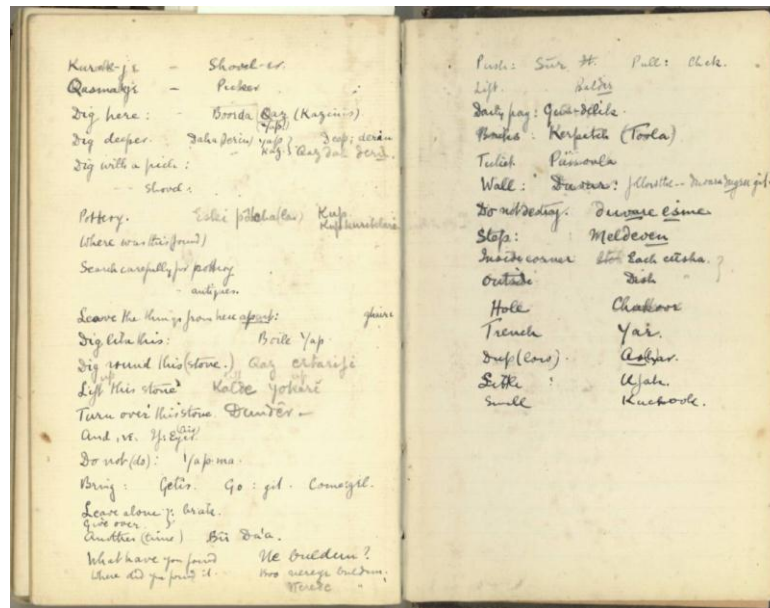 Kurek-je - Shovel-er.
Qasmakje - Picker
Dig here: Boorda Qaz (Kazinis)
Yap
Dig deeper. Daha derin Yap Deep: derin
Kaz Qaz daa derin.
Dig with a pick:
- - Shovel:
Pottery. Eski Kup
Where was this found)
Search carefully for pottery
- antiques.
Leave the things from here apart:
Dig like this: Boile Yap
Dig round this (stone.) Qaz
Lift up this stone Kalde yokari
Turn over this stone. Dundêr -
And, ve. If: Eyer
Do not (do): Yap-ma.
Bring: Getir. Go: git. Come: gel.
Leave alone: brak.
Give over.
Another (time) Bir Da'a.
What have you found Ne buldum?
Where did you find it. Boo nerege buldum.
Nerede "
Push: Sür Pull: Chek.
Lift. Kalder
Daily pay: Gun-delik.
Kerpetch (Toola)
Ticket Pussoula
Wall: Duvar:
Do not destroy. duvare esme.
Steps: Meldeven
Inside corner
Outside Dish "
Hole Chakoor
Trench Yar.
Little: Ufak.
Small Kuchook.